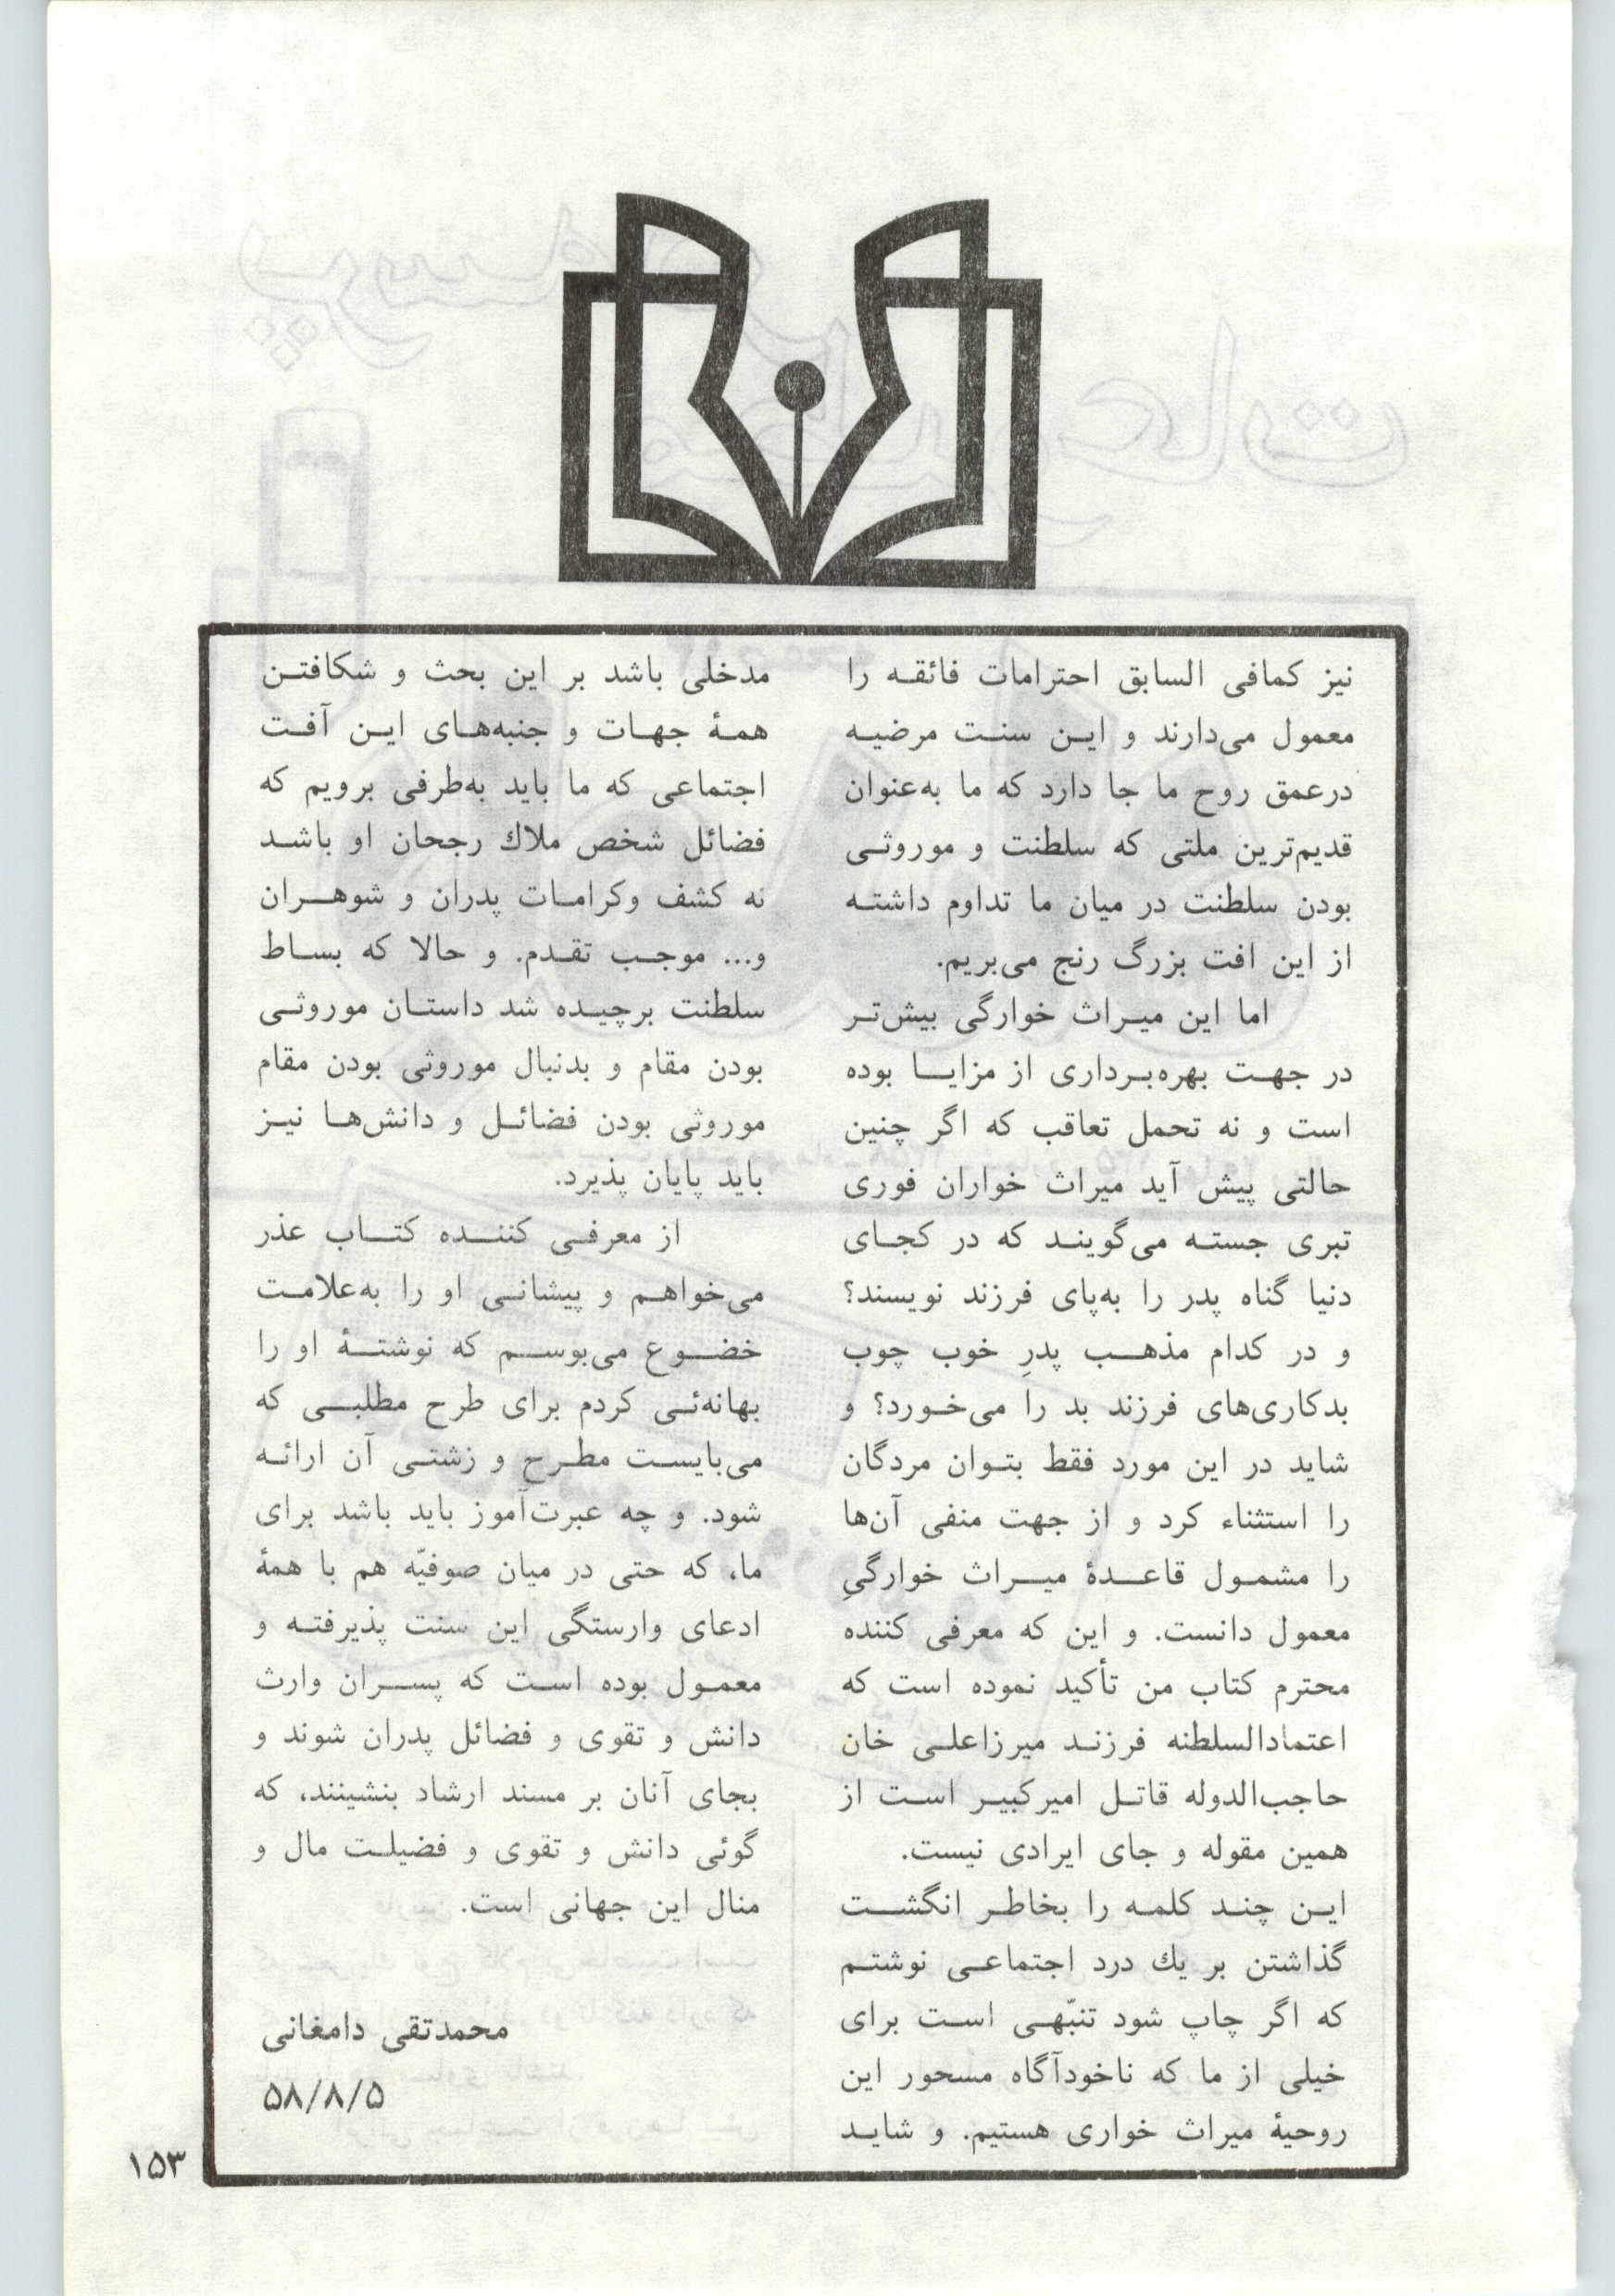 نیز کمافی السابق احترامات فائقه را
معمول می‌دارند و این سنت مرضیه
درعمق روح ما جا دارد که ما به‌عنوان
قدیم‌ترین ملتی که سلطنت و موروثی
بودن سلطنت در میان ما تداوم داشته
از این افت بزرگ رنج می‌بریم.
اما این میراث خوارگی بیش‌تر
در جهت بهره‌برداری از مزایا بوده
است و نه تحمل تعاقب که اگر چنین
حالتی پیش آید میراث خواران فوری
تبری جسته می‌گویند که در کجای
دنیا گناه پدر را به‌پای فرزند نویسند؟
و در کدام مذهب پدرِ خوب چوب
بدکاری‌های فرزند بد را می‌خورد؟ و
شاید در این مورد فقط بتوان مردگان
را استثناء کرد و از جهت منفی آن‌ها
را مشمول قاعدهٔ میراث خوارگیِ
معمول دانست. و این که معرفی کننده
محترم کتاب من تأکید نموده است که
اعتمادالسلطنه فرزند میرزاعلی خان
حاجب‌الدوله قاتل امیرکبیر است از
همین مقوله و جای ایرادی نیست.
این چند کلمه را بخاطر انگشت
گذاشتن بر یك درد اجتماعی نوشتم
که اگر چاپ شود تنبّهی است برای
خیلی از ما که ناخودآگاه مسحور این
روحیهٔ میراث خواری هستیم. و شاید
مدخلی باشد بر این بحث و شکافتن
همهٔ جهات و جنبه‌های این آفت
اجتماعی که ما باید به‌طرفی برویم که
فضائل شخص ملاك رجحان او باشد
نه کشف وکرامات پدران و شوهران
و... موجب تقدم. و حالا که بساط
سلطنت برچیده شد داستان موروثی
بودن مقام و بدنبال موروثی بودن مقام
موروثی بودن فضائل و دانش‌ها نیز
باید پایان پذیرد.
از معرفی کننده کتاب عذر
می‌خواهم و پیشانی او را به‌علامت
خضوع می‌بوسم که نوشتهٔ او را
بهانه‌ئی کردم برای طرح مطلبی که
می‌بایست مطرح و زشتی آن ارائه
شود. و چه عبرت‌آموز باید باشد برای
ما، که حتی در میان صوفیّه هم با همهٔ
ادعای وارستگی این سنت پذیرفته و
معمول بوده است که پسران وارث
دانش و تقوی و فضائل پدران شوند و
بجای آنان بر مسند ارشاد بنشینند، که
گوئی دانش و تقوی و فضیلت مال و
منال این جهانی است.
محمدتقی دامغانی
۵۸/۸/۵
۱۵۳